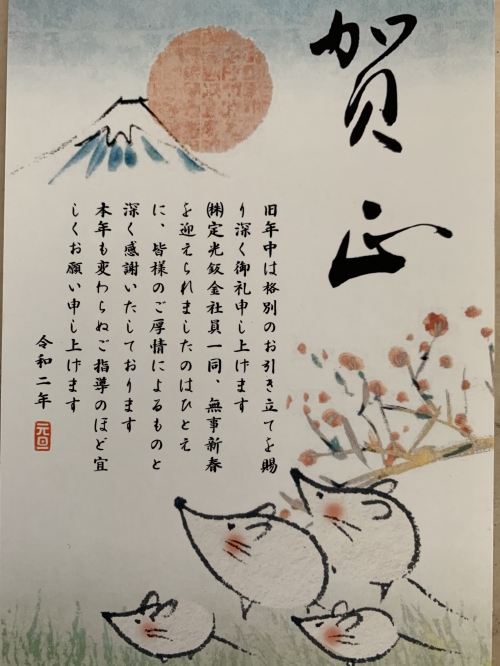 賀正
旧年中は格別のお引き立てを賜
り深く御礼申し上げます
㈱定光鈑金社員一同、無事新春
を迎えられましたのはひとえ
に、皆様のご厚情によるものと
深く感謝いたしております
本年も変わらぬご指導のほど宜
しくお願い申し上げます
令和二年
元旦